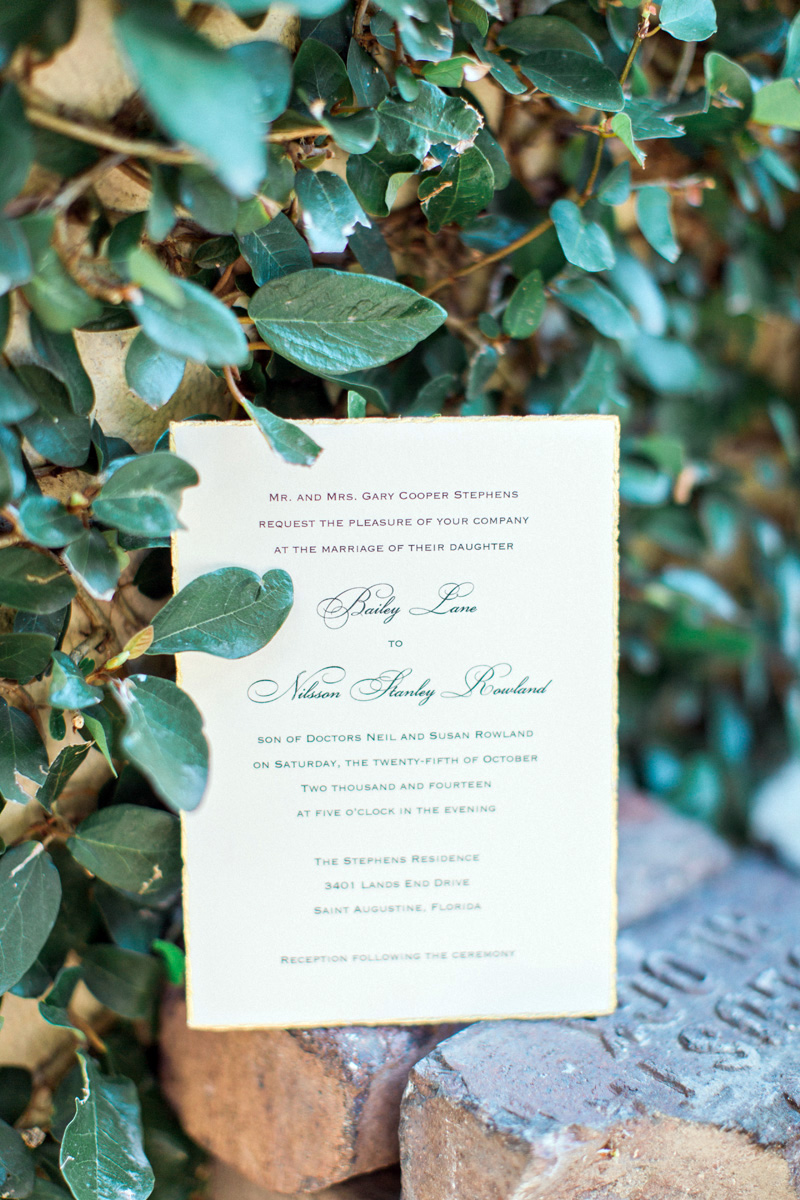 Mr. and Mrs. Gary Cooper Stephens
request the pleasure of your company
at the marriage of their daughter
Bailey Lane
to
Nilsson Stanley Rowland
son of Doctors Neil and Susan Rowland
on Saturday, the twenty-fifth of October
Two thousand and fourteen
at five o'clock in the evening
The Stephens Residence
3401 Lands End Drive
Saint Augustine, Florida
Reception following the ceremony